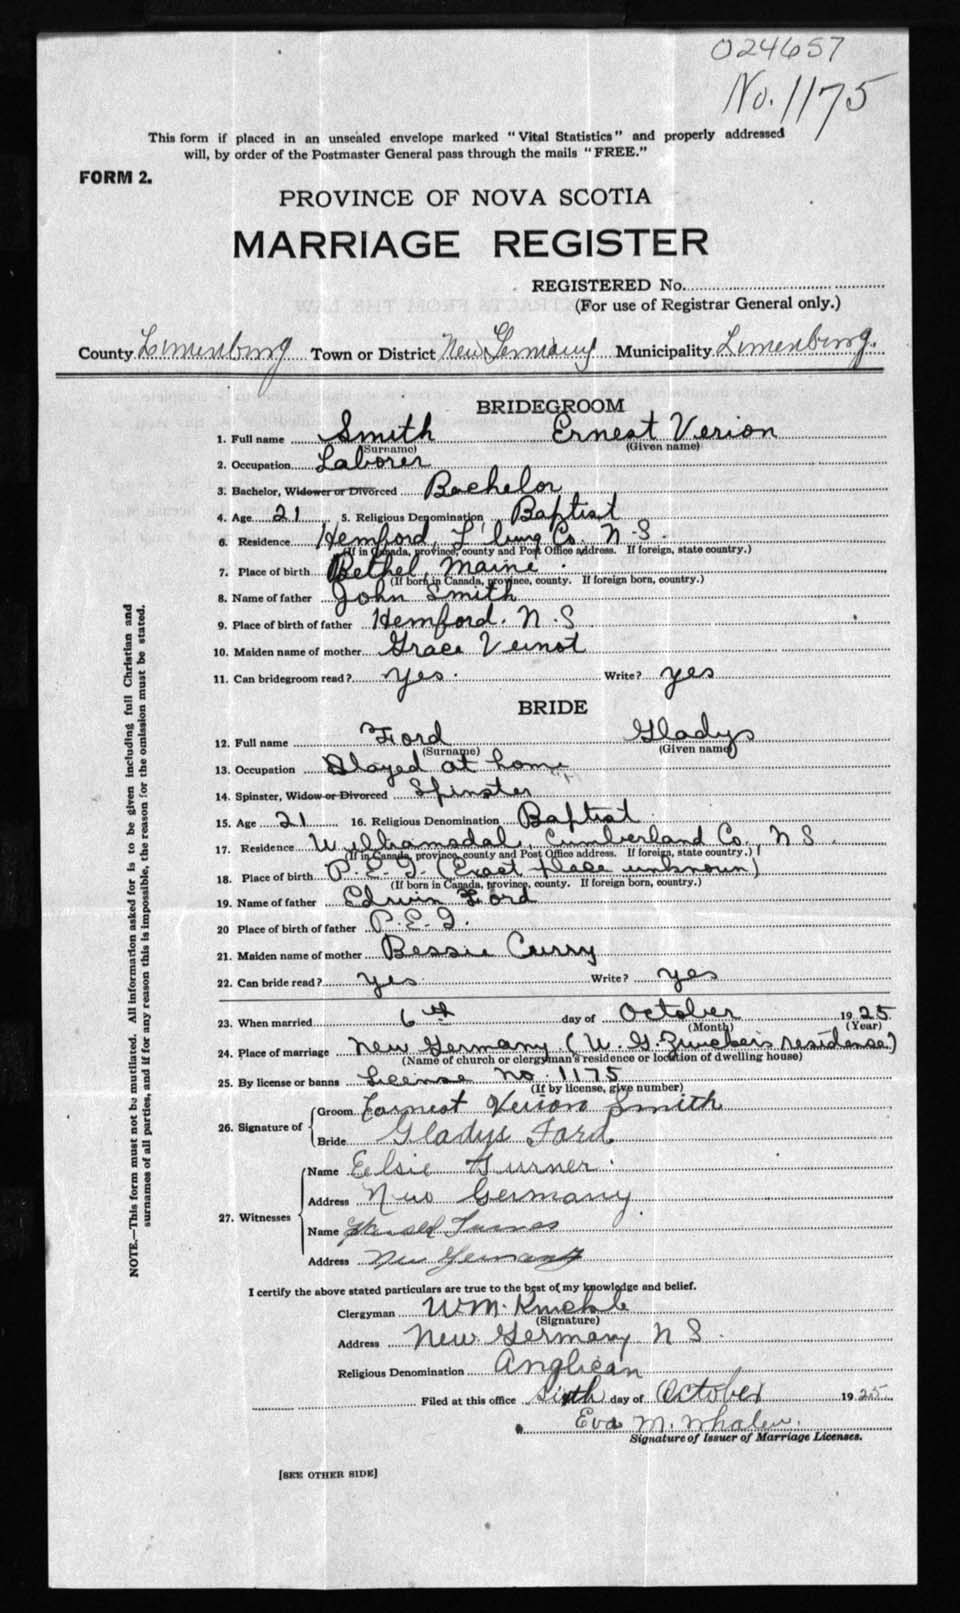 024657
No. 1175
This form if placed in an unsealed envelope marked "Vital Statistics" and properly addressed
will, by order of the Postmaster General pass through the mails "FREE."
FORM 2.
PROVINCE OF NOVA SCOTIA
MARRIAGE REGISTER
REGISTERED No.
(For use of Registrar General only.)
County Lunenburg Town or District New Germany Municipality Lunenburg.
BRIDEGROOM
1. Full name Smith Ernest Verion
(Surname) (Given name)
2. Occupation Laborer
3. Bachelor, Widower or Divorced Bachelor
4. Age 21 5. Religious Denomination Baptist
6. Residence Hemford, L'burg Co. N.S.
(If in Canada, province, county and Post Office address. If foreign, state country.)
7. Place of birth Bethel, Maine.
(If born in Canada, province, county. If foreign born, country.)
8. Name of father John Smith
9. Place of birth of father Hemford. N.S
10. Maiden name of mother Grace Veinot
11. Can bridegroom read? yes. Write? yes
BRIDE
12. Full name Ford Gladys
(Surname) (Given name)
13. Occupation Stayed at home
14. Spinster, Widow or Divorced Spinster
15. Age 21 16. Religious Denomination Baptist
17. Residence Williamsdal, Cumberland Co., N S.
(If in Canada, province, county and Post Office address. If foreign, state country.)
18. Place of birth P.E.I. (Exact place unknown)
(If born in Canada, province, county. If foreign born, country.)
19. Name of father Edwin Ford
20 Place of birth of father P.E.I.
21. Maiden name of mother Bessie Curry
22. Can bride read? yes Write? yes
23. When married 6th day of October 1925
(Month) (Year)
24. Place of marriage New Germany (W. G. Zwicker's residence)
(Name of church or clergyman's residence or location of dwelling house)
25. By license or banns License No. 1175
(If by license, give number)
26. Signature of Groom Earnest Verion Smith
Bride Gladys Ford
27. Witnesses Name Elsie Turner
Address New Germany
Name Turner
Address New Germany
I certify the above stated particulars are true to the best of my knowledge and belief.
Clergyman W.M.
(Signature)
Address New Germany N S.
Religious Denomination Anglican
Filed at this office Sixth day of October 1925
Eva M. Whalen.
Signature of Issuer of Marriage Licenses.
[SEE OTHER SIDE]
NOTE.—This form must not be mutilated. All information asked for is to be given including full Christian and
surnames of all parties, and if for any reason this is impossible, the reason for the omission must be stated.